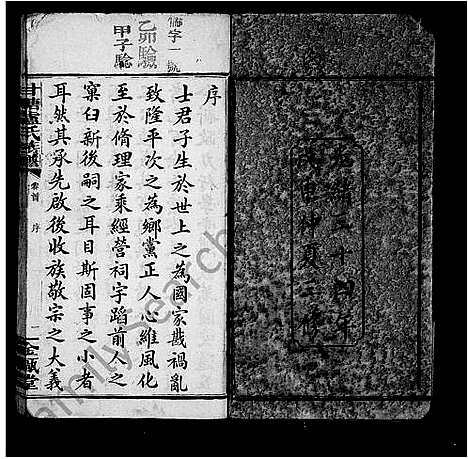 光緒三十四年
歲戊申仲夏三修
儒字一號
乙卯驗
甲子驗
序
士君子生於世上之為國家戡禍亂
致隆平次之為鄉黨正人心維風化
至於脩理家乘經營祠宇蹈前人之
窠臼新後嗣之耳目斯固事之小者
耳然其承先啟後收族敬宗之大義
氏族譜
卷首
序
一
堂
FamilySearch